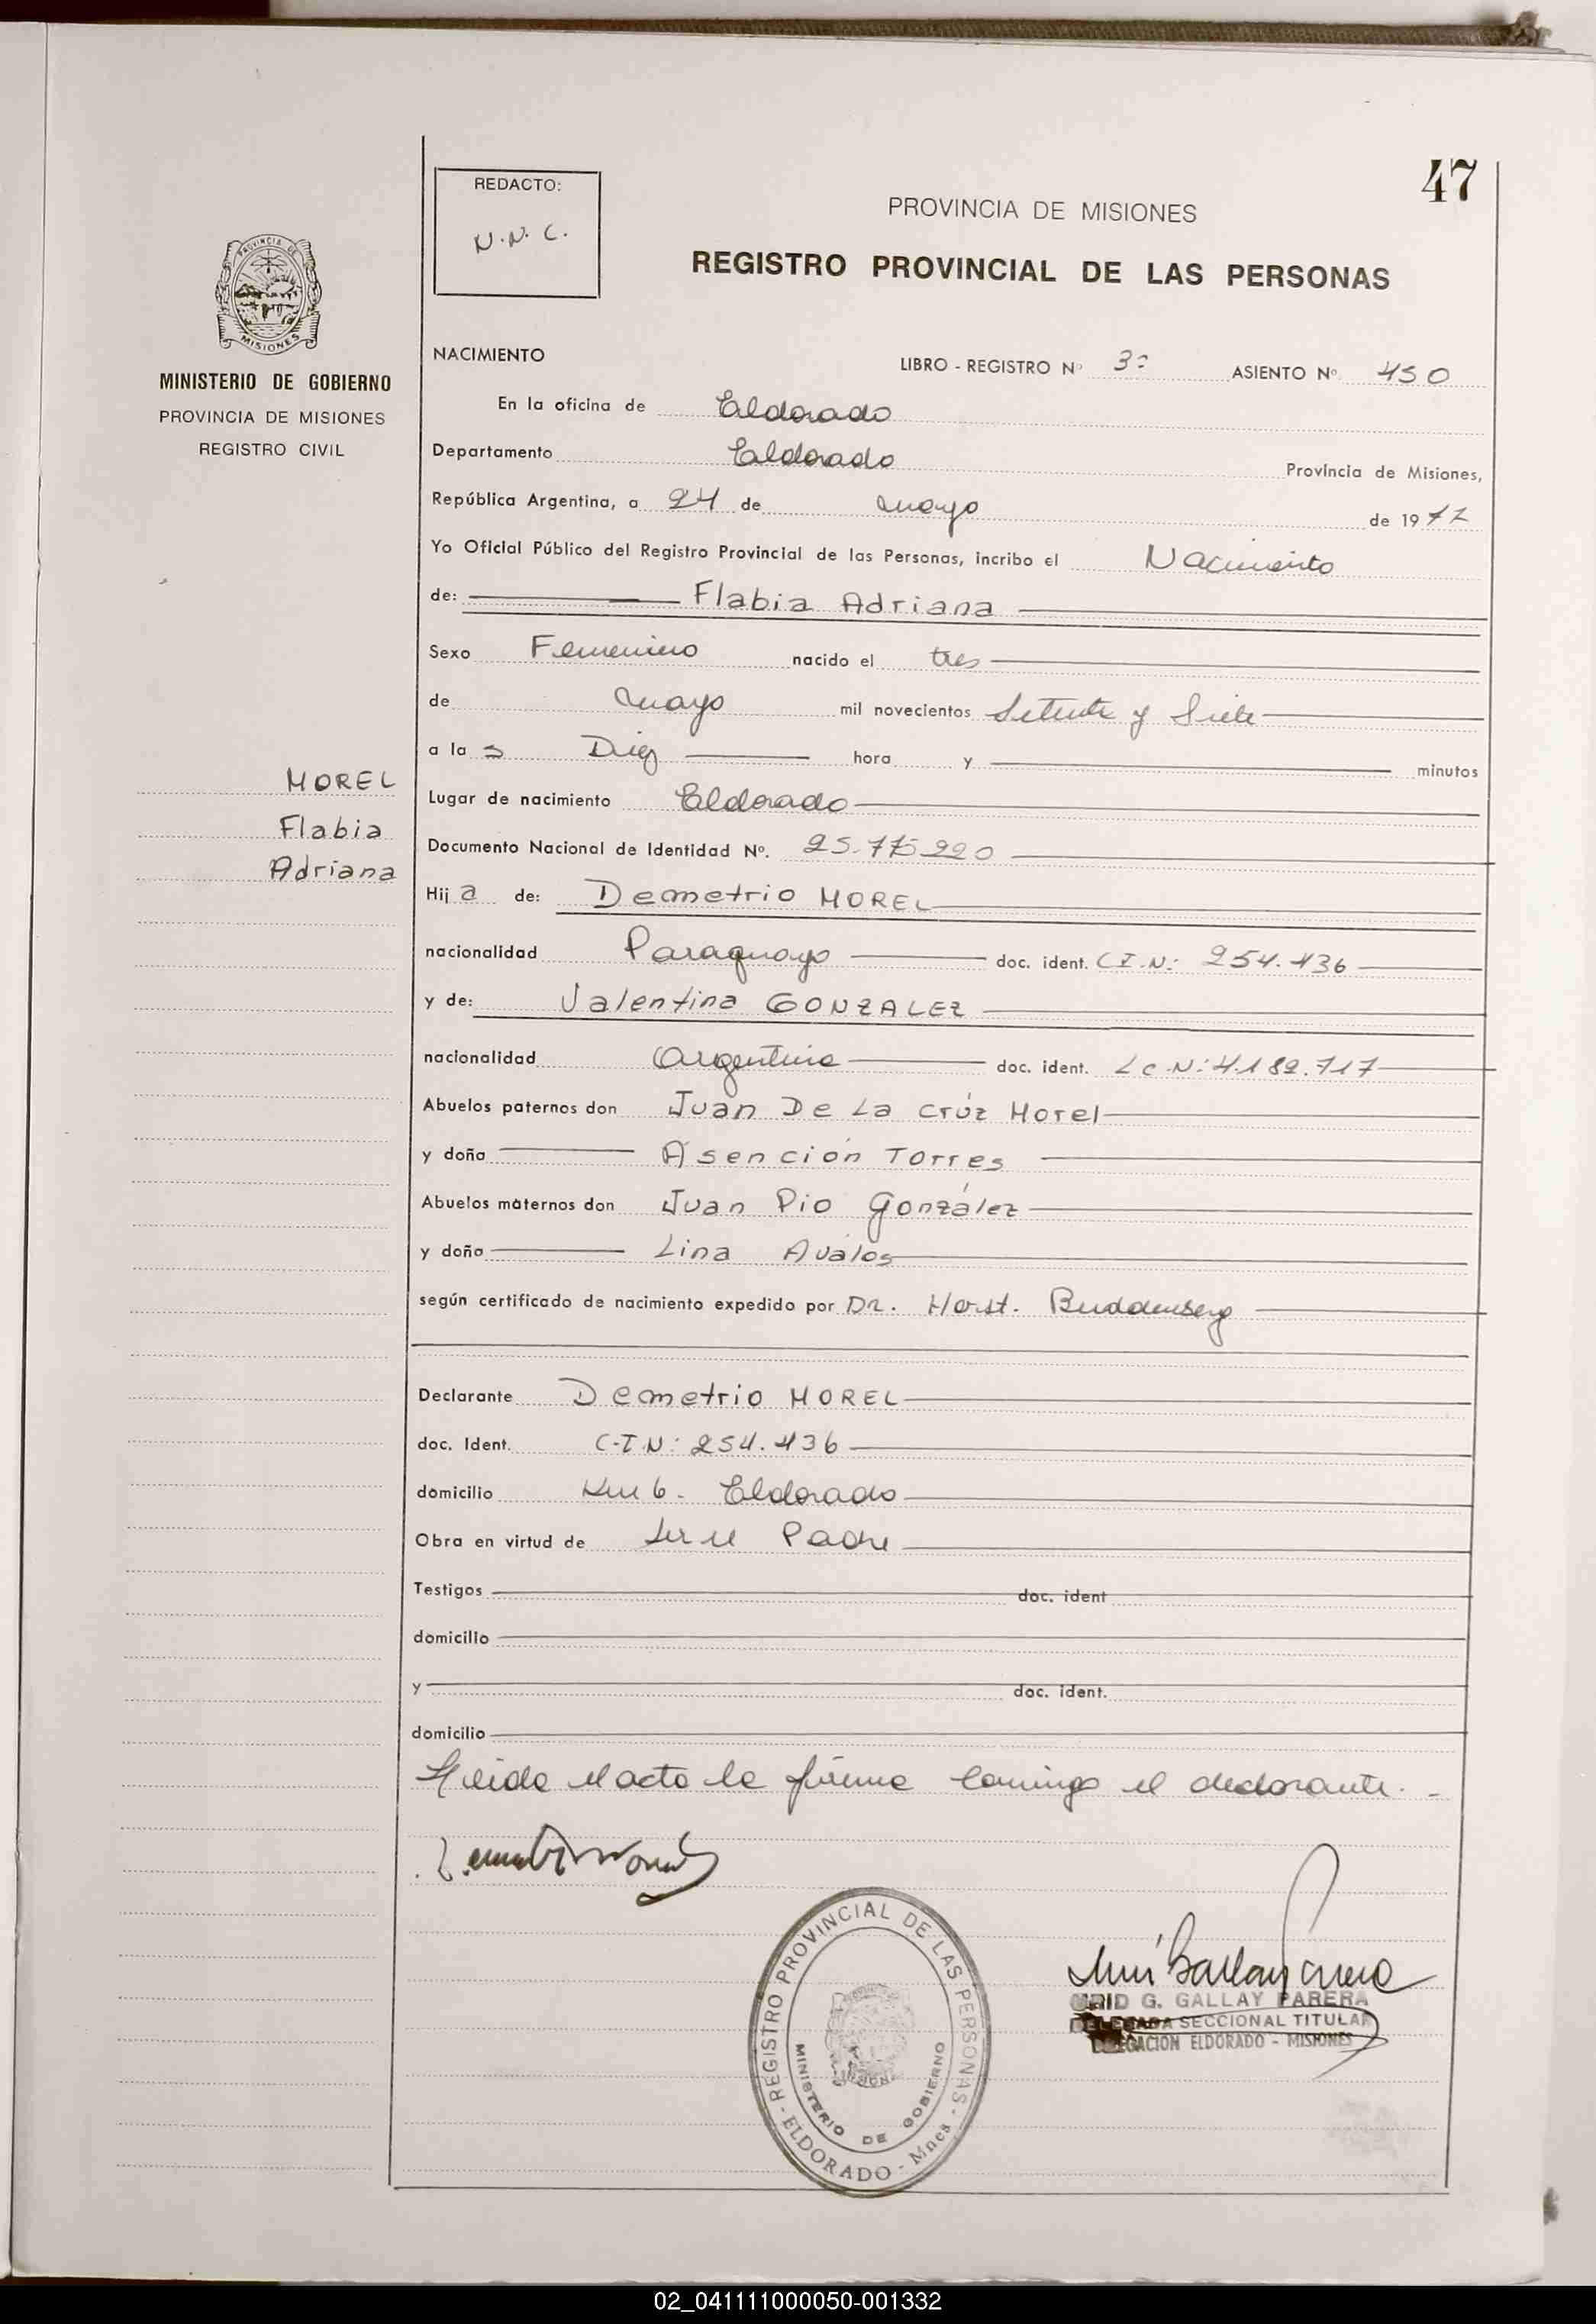 47
REDACTO:
N.N.C.
PROVINCIA DE MISIONES
REGISTRO PROVINCIAL DE LAS PERSONAS
PROVINCIA DE MISIONES
MINISTERIO DE GOBIERNO
PROVINCIA DE MISIONES
REGISTRO CIVIL
NACIMIENTO LIBRO - REGISTRO Nº 3º ASIENTO Nº 450
En la oficina de Eldorado
Departamento Eldorado Provincia de Misiones,
República Argentina, a 24 de mayo de 1977
Yo Oficial Público del Registro Provincial de las Personas, incribo el Nacimiento
de: Flabia Adriana
Sexo Femenino nacido el tres
de mayo mil novecientos Setenta y Siete
a la s Diez hora y minutos
MOREL
Flabia
Adriana
Lugar de nacimiento Eldorado
Documento Nacional de Identidad Nº. 25.775.220
Hij a de: Demetrio MOREL
nacionalidad Paraguayo doc. ident. C.I.N: 254.436
y de: Valentina GONZALEZ
nacionalidad Argentina doc. ident. L.C.N: 4.182.717
Abuelos paternos don Juan De La Crúz Morel
y doña Asención Torres
Abuelos maternos don Juan Pio González
y doña Lina Aválos
según certificado de nacimiento expedido por Dr. Horst. Buddenberg
Declarante Demetrio MOREL
doc. Ident. C.I.N: 254.436
domicilio Km 6. Eldorado
Obra en virtud de ser el Padre
Testigos doc. ident
domicilio
y doc. ident.
domicilio
Leida el acta la firma conmigo el declarante. -
REGISTRO PROVINCIAL DE LAS PERSONAS - ELDORADO - Mnes -
MINISTERIO DE GOBIERNO
G. GALLAY PARERA
DELEGADA SECCIONAL TITULAR
DELEGACION ELDORADO - MISIONES
02_041111000050-001332